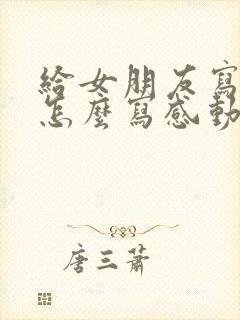 給女朋友寫
怎麼寫感動
唐三蕭